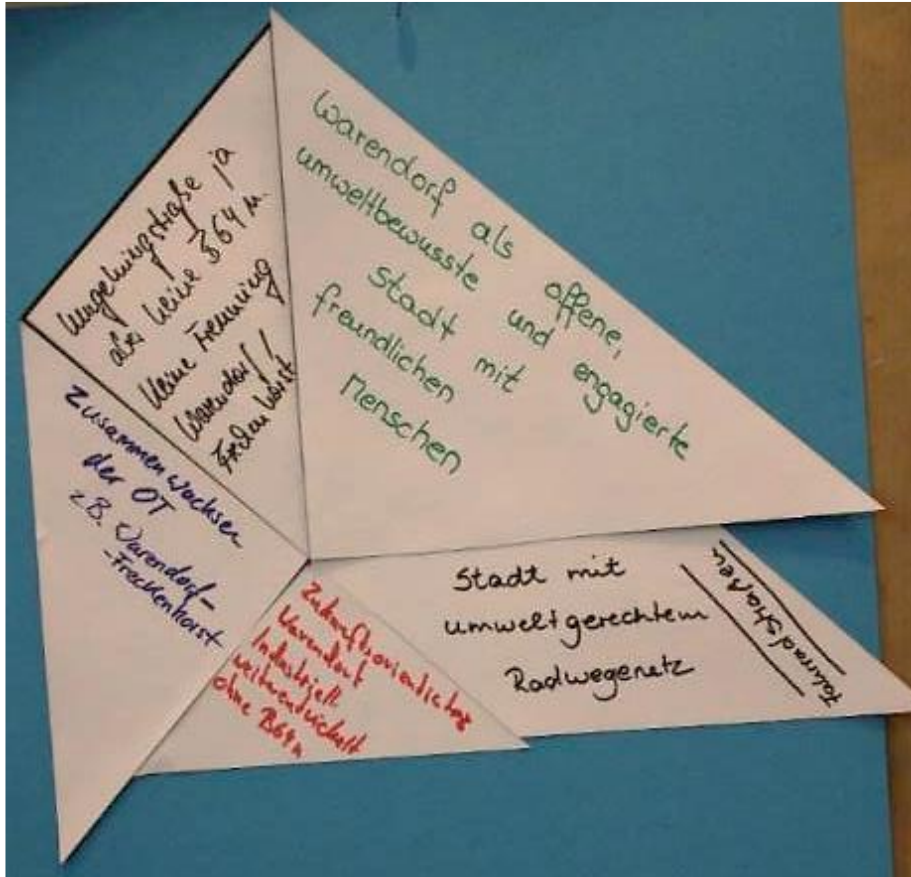 Umgehungstraße ja
aber keine B64 n.
keine Trennung
Warendorf /
Freckenhorst
Warendorf als offene,
umweltbewusste und engagierte
Stadt mit
freundlichen
Menschen
Zusammenwachsen
der OT
z.B. Warendorf-
-Freckenhorst
Zukunftsorientiertes
Warendorf
Industriell
weiterentwickelt
ohne B64n
Stadt mit
umweltgerechtem
Radwegenetz
Fahrradstraßen